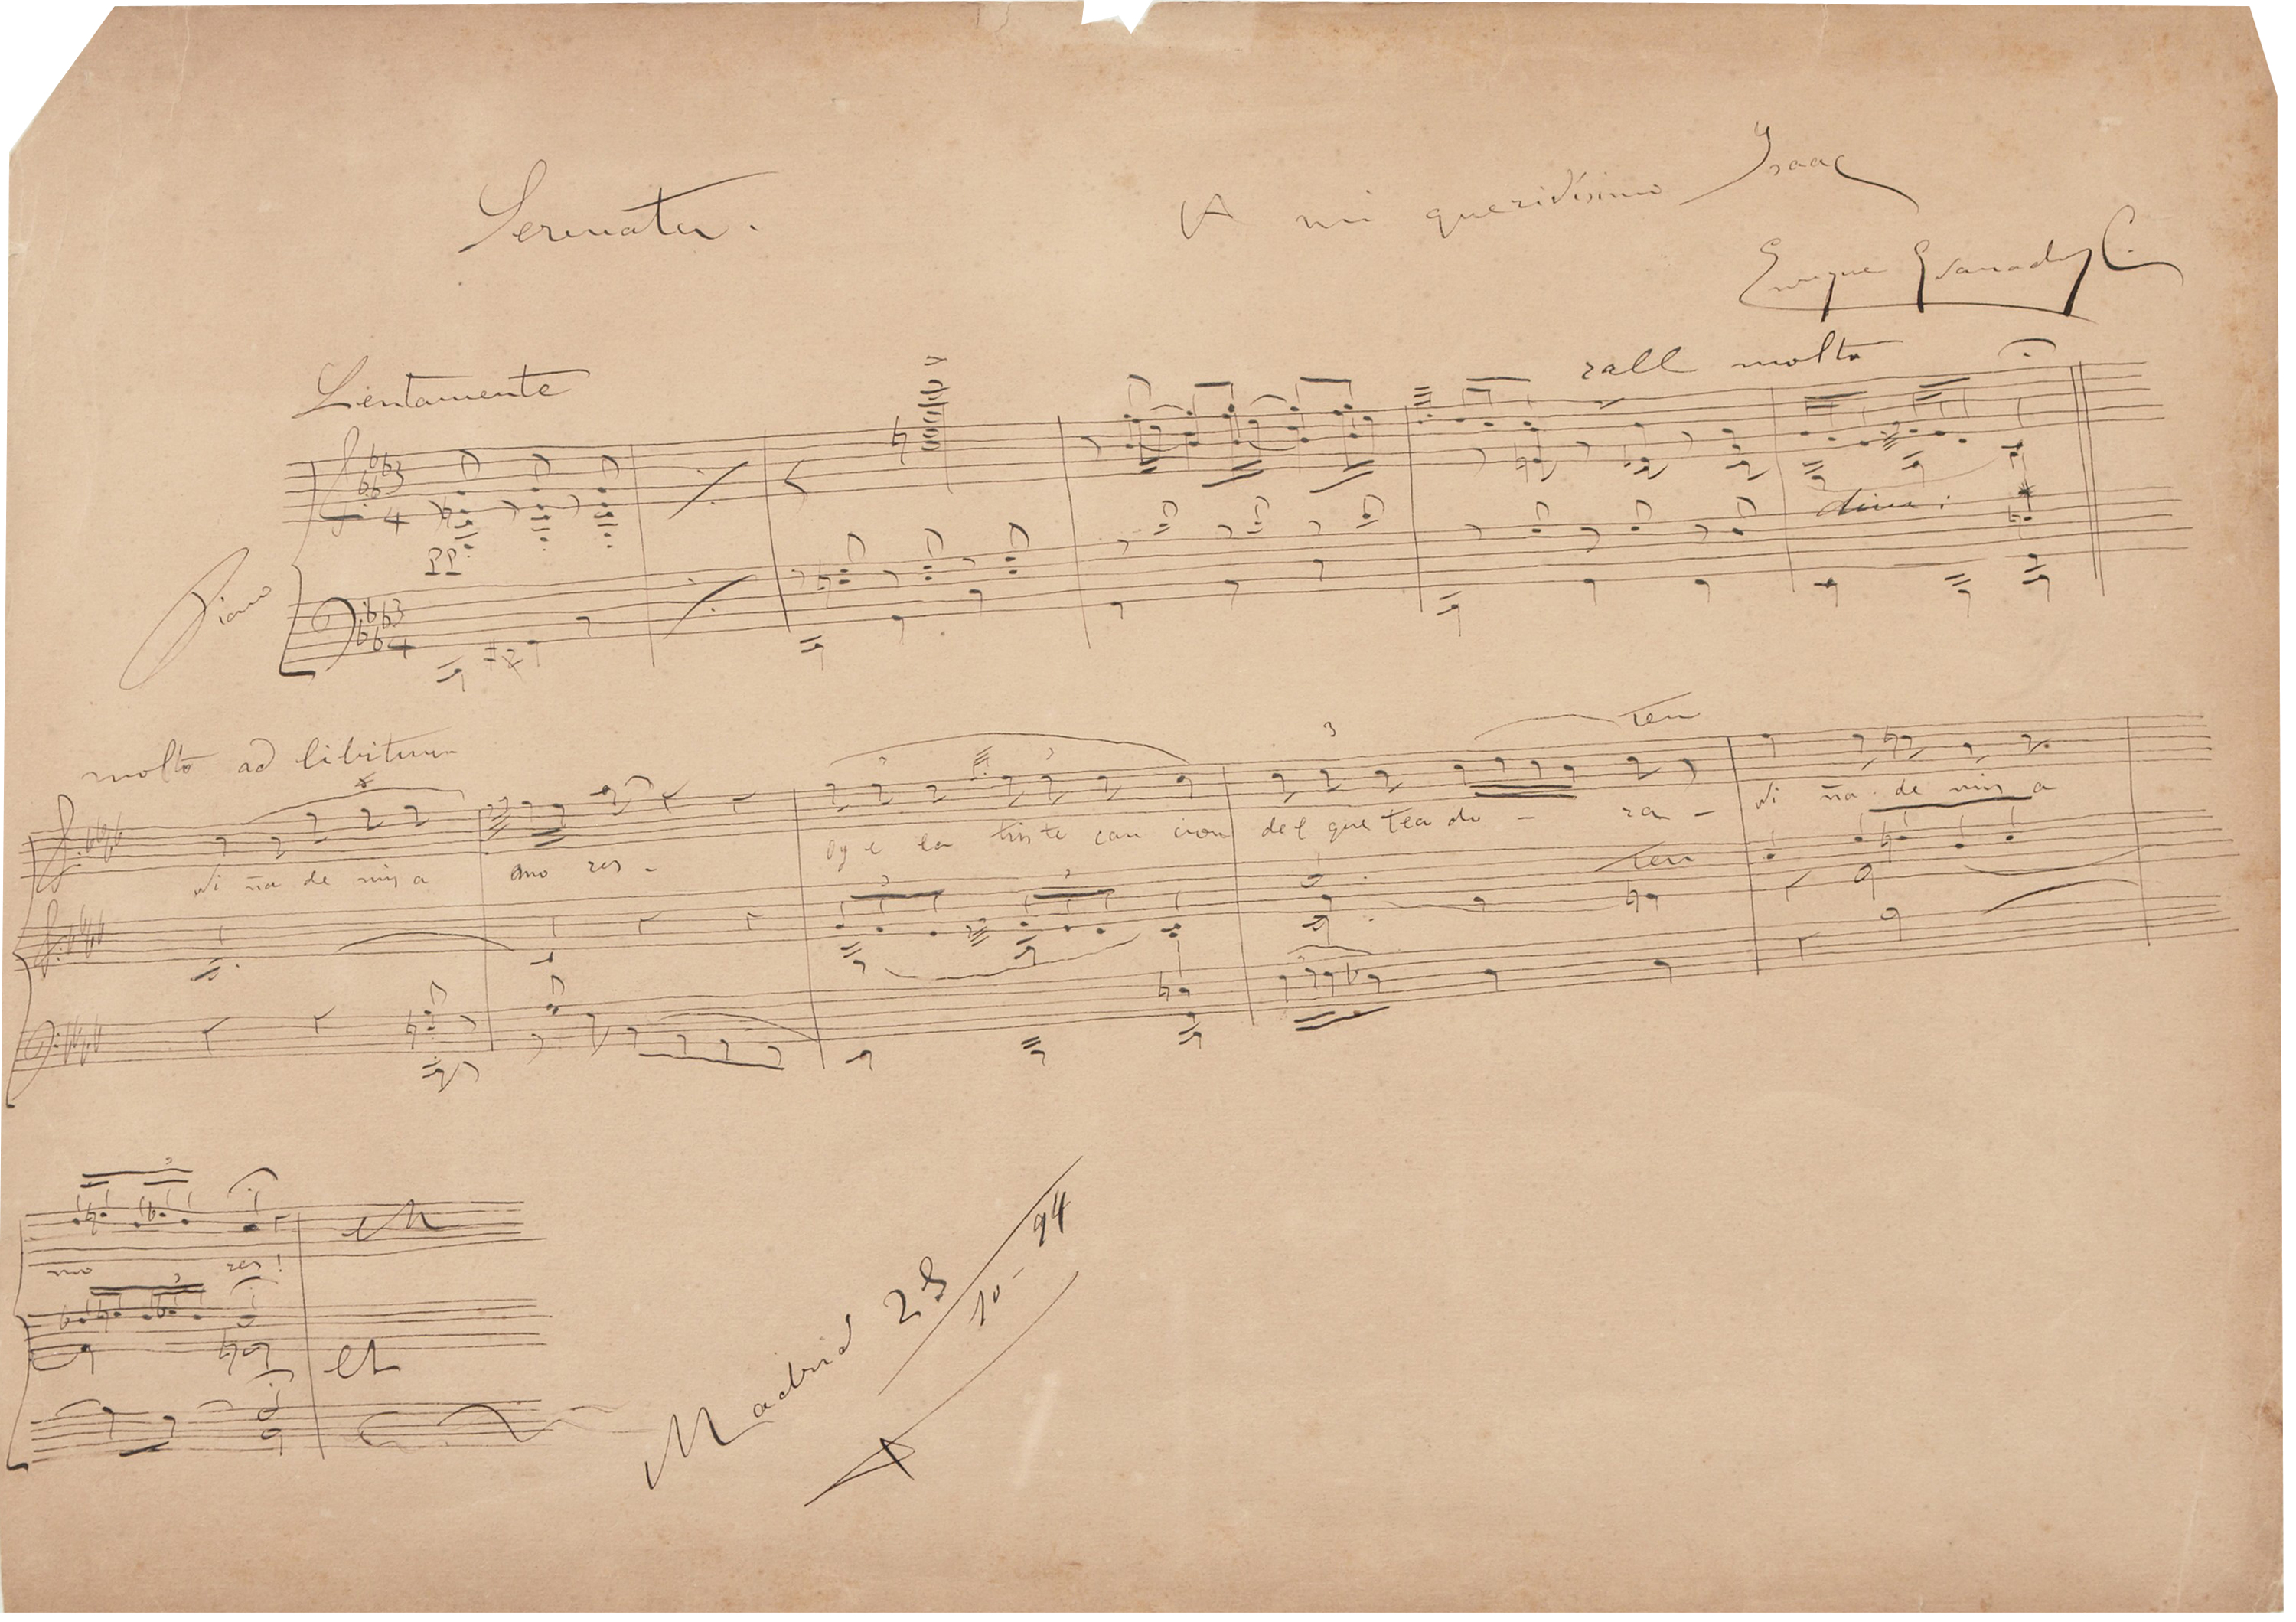 Serenata.
A mi queridísimo Isaac
Enrique Granados C.
Lentamente
rall molto
3
4
PP
dim:
Piano
3
4
molto ad libitum
ten
3
3
3
Ni ña de mis a mo res -
oy e la tris te can cion del que tea do - ra -
Ni ña de mis a
ten
3
3
3
3
mo res!
3
Madrid 25
10 - 94